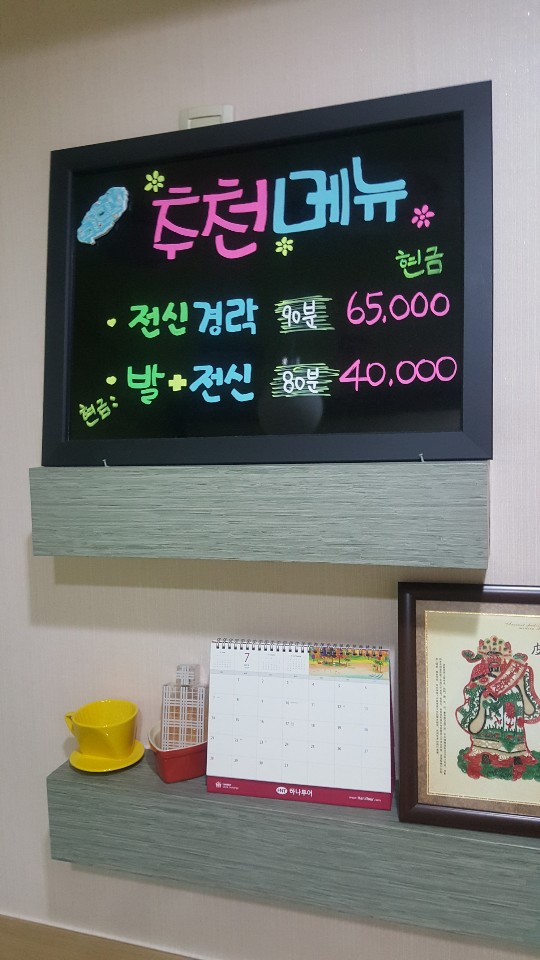 추천메뉴
현금
전신경락 90분 65,000
발+전신 80분 40,000
현금:
7
하나투어